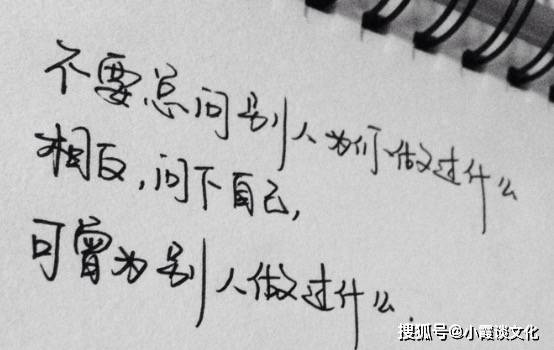 不要总问别人为你做过什么
相反,问下自己,
可曾为别人做过什么.
搜狐号@小霞谈文化